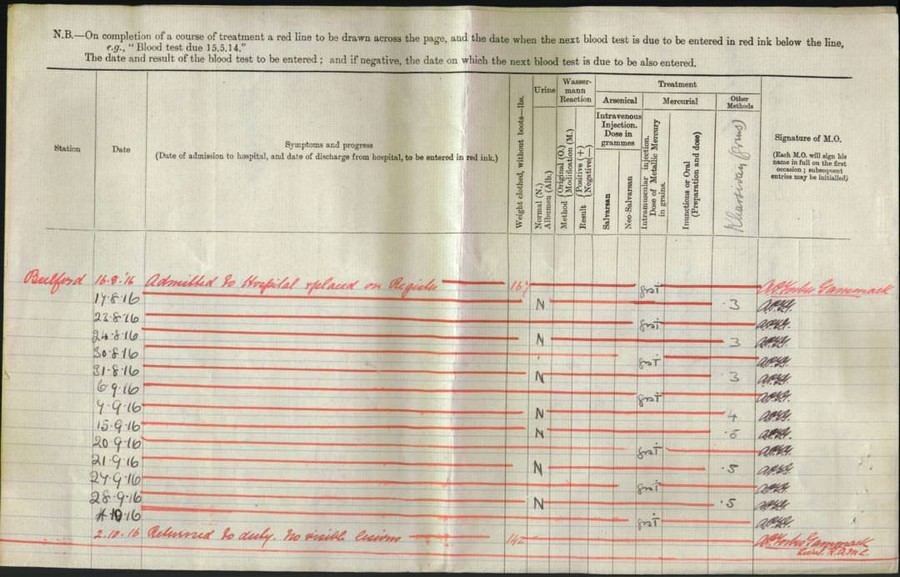 N.B.—On completion of a course of treatment a red line to be drawn across the page, and the date when the next blood test is due to be entered in red ink below the line,
e.g., "Blood test due 15.5.14."
The date and result of the blood test to be entered; and if negative, the date on which the next blood test is due to be also entered.
Station
Date
Symptoms and progress
(Date of admission to hospital, and date of discharge from hospital, to be entered in red ink.)
Weight clothed, without boots—lbs.
Urine
Normal (N.)
Albumen (Alb.)
Wasser-
mann
Reaction
Method { Original (O.)
Modification (M.)
Result { Positive (+)
Negative (—)
Treatment
Arsenical
Intravenous
Injection.
Dose in
grammes
Salvarsan
Neo-Salvarsan
Mercurial
Intramuscular injection.
Dose of Metallic Mercury
in grains.
Inunctions or Oral
(Preparation and dose)
Other
Methods
Kharsivan
Signature of M.O.
(Each M.O. will sign his
name in full on the first
occasion; subsequent
entries may be initialled)
Bulford 16.8.16 Admitted to Hospital & placed on Register 167
17.8.16 N .3
23.8.16
24.8.16 N 3
30.8.16
31.8.16 N 3
6.9.16
9.9.16 N 4
15.9.16 N
20.9.16
21.9.16 N .5
27.9.16
28.9.16 N .5
16
2.10.16 Returned to duty. No visible lesions Gammack
R.A.M.C.